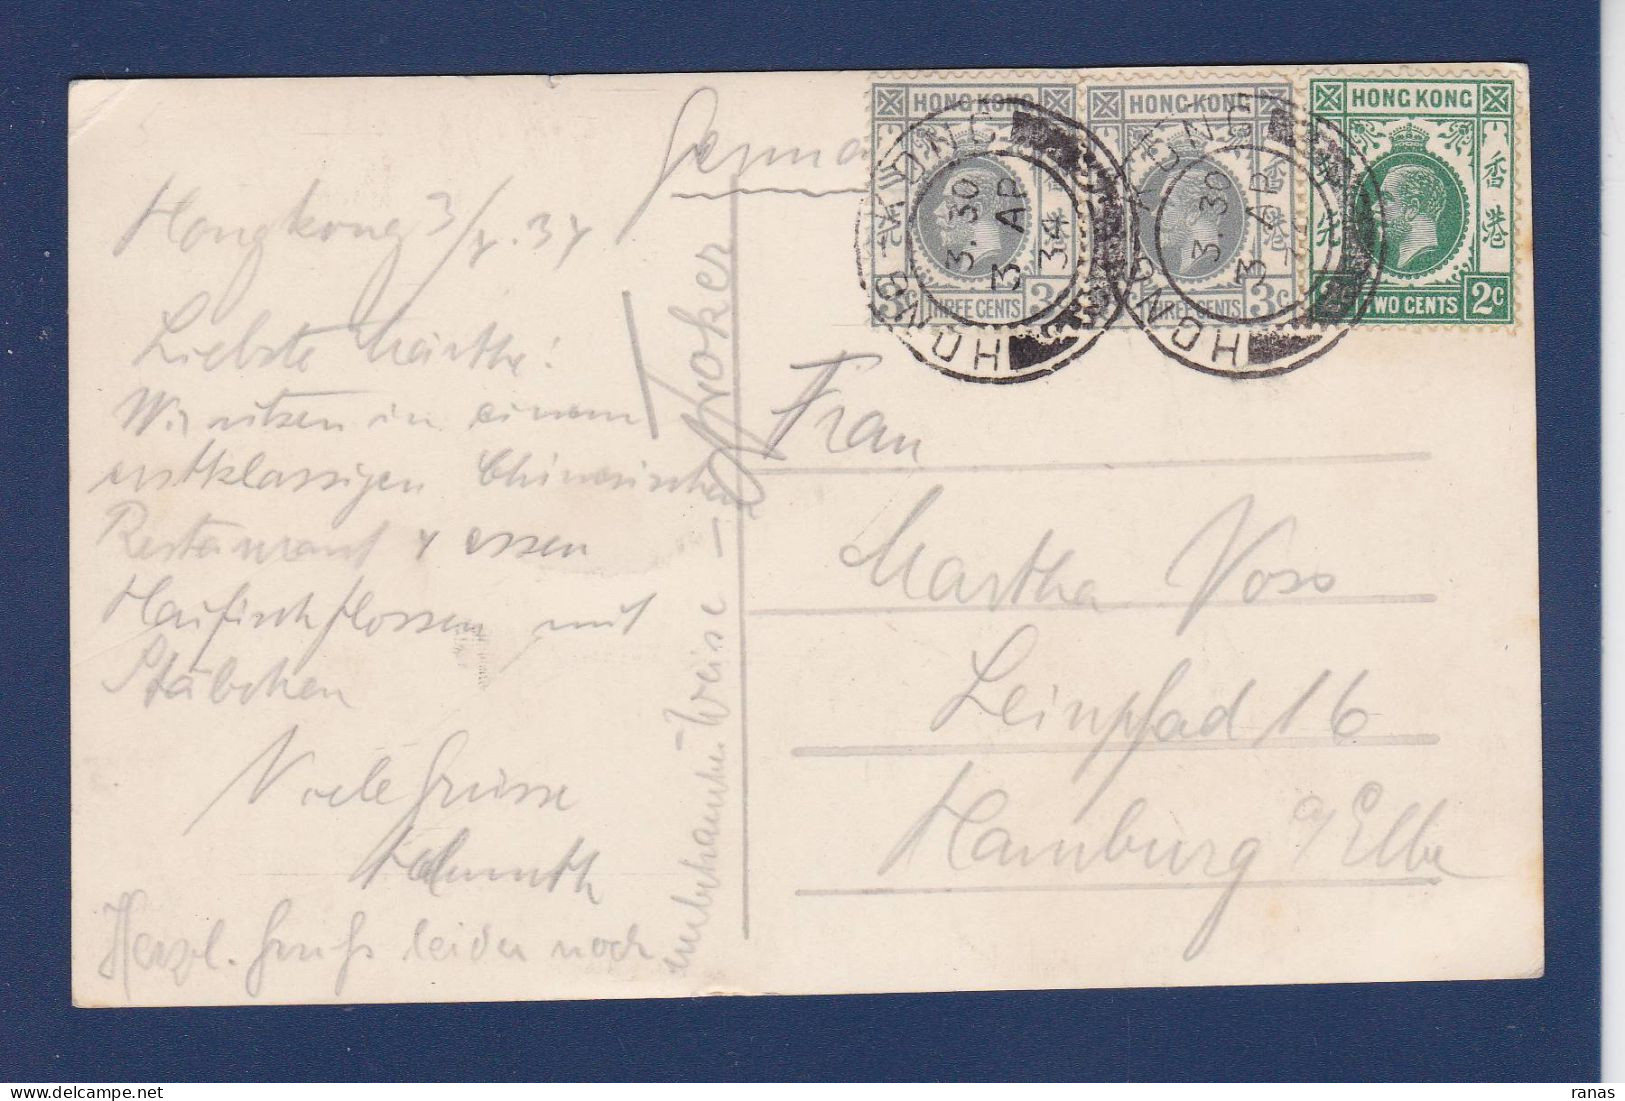 Germa
Hongkong 3/4.34
Liebste Märthe!
Wir sitzen in einem
erstklassigen Chinesischen
Restaurant & essen
Haifischflossen mit
Stäbchen
Viele Grüsse
Helmuth
Herzl. Gruß leider noch
unbekannter Weise –
Frau
Martha Voss
Leinpfad 16
Hamburg a/Elbe
HONG KONG
香港
THREE CENTS
3c
HONG KONG
香港
THREE CENTS
3c
HONG KONG
香港
TWO CENTS
2c
HONG KONG
3.30
3 AP
34
HONG KONG
3.30
3 AP
ranas